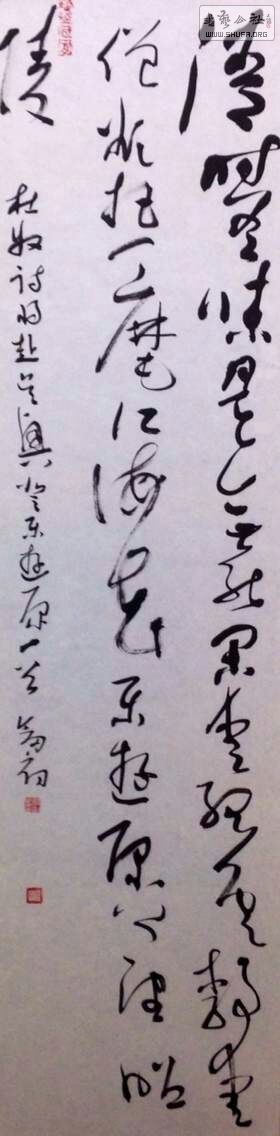 書藝公社
WWW.SHUFA.ORG
清時有味是無能閑愛孤雲靜愛
僧欲把一麾江海去樂遊原上望昭
陵
杜牧詩將赴吳興登樂遊原一首